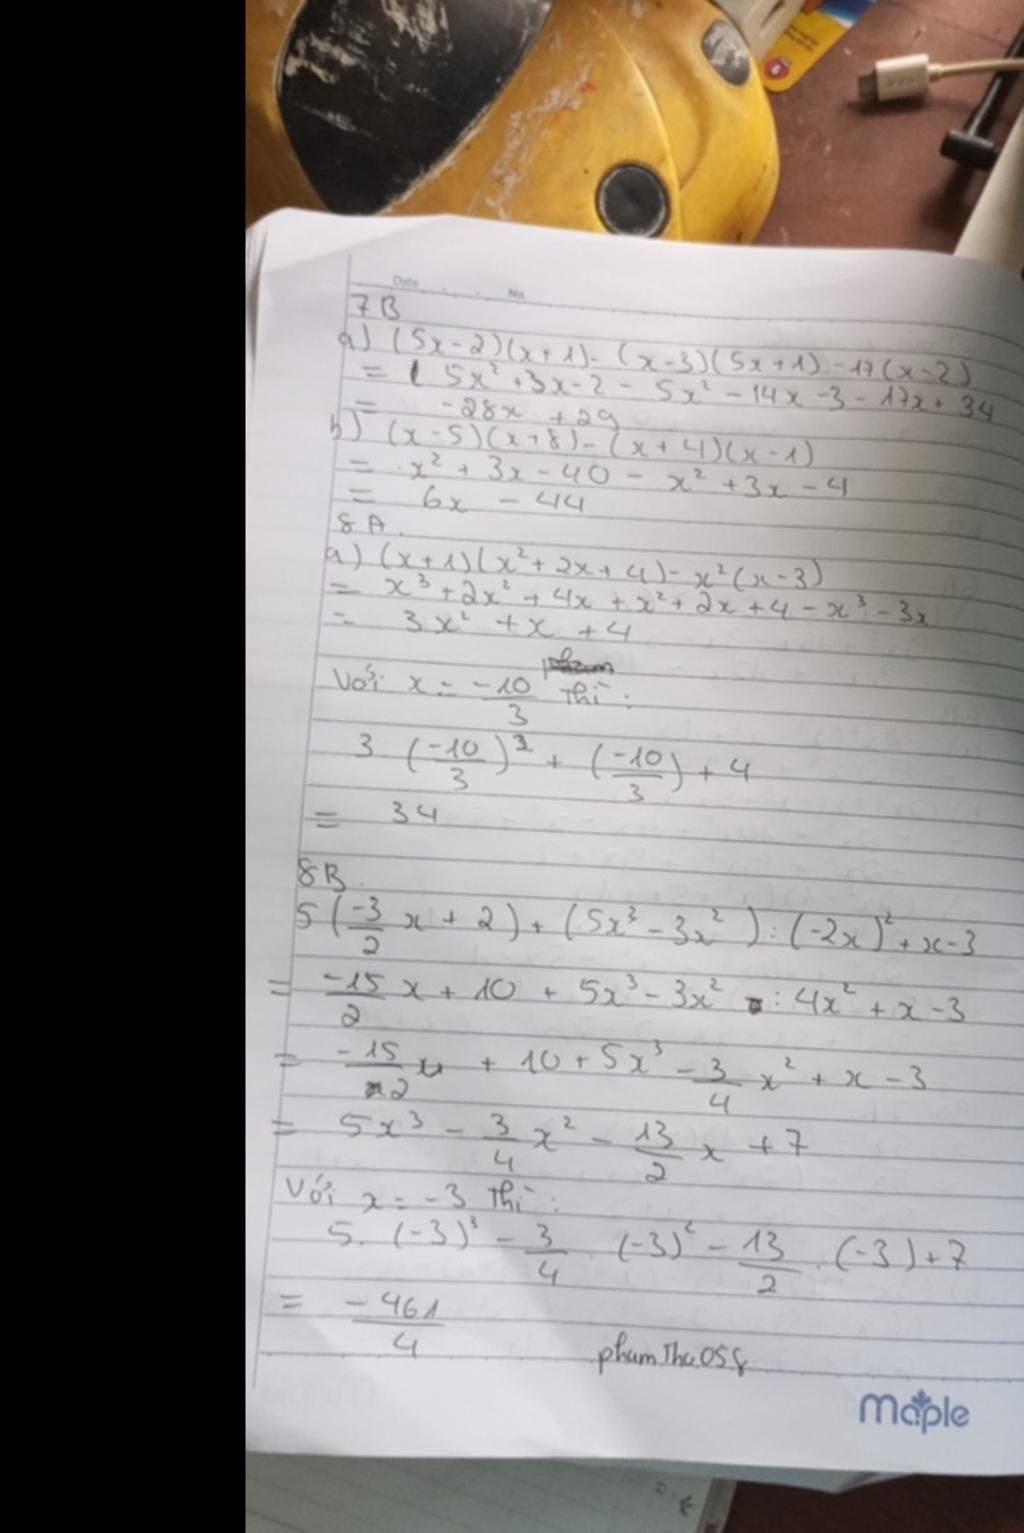 Date No.
7B
a) (5x-2)(x+1)-(x-3)(5x+1)-17(x-2)
= ( 5x² +3x-2 - 5x² - 14x -3 - 17x + 34
= -28x + 29
b) (x-5)(x+8)-(x+4)(x-1)
= x² + 3x - 40 - x² + 3x - 4
= 6x - 44
8A.
a) (x+1)(x²+2x+4)-x²(x-3)
= x³+2x²+4x+x²+2x+4-x³-3x
= 3x² + x + 4
Với x = -10/3 thì:
3 (-10/3)² + (-10/3) + 4
= 34
8B.
5(-3/2 x + 2) + (5x³ - 3x²) : (-2x)² + x - 3
= -15/2 x + 10 + 5x³ - 3x² : 4x² + x - 3
= -15/2 x + 10 + 5x³ - 3/4 x² + x - 3
= 5x³ - 3/4 x² - 13/2 x + 7
Với x = -3 thì:
5. (-3)³ - 3/4 . (-3)² - 13/2 . (-3) + 7
= -461/4
phamTha058
Maple